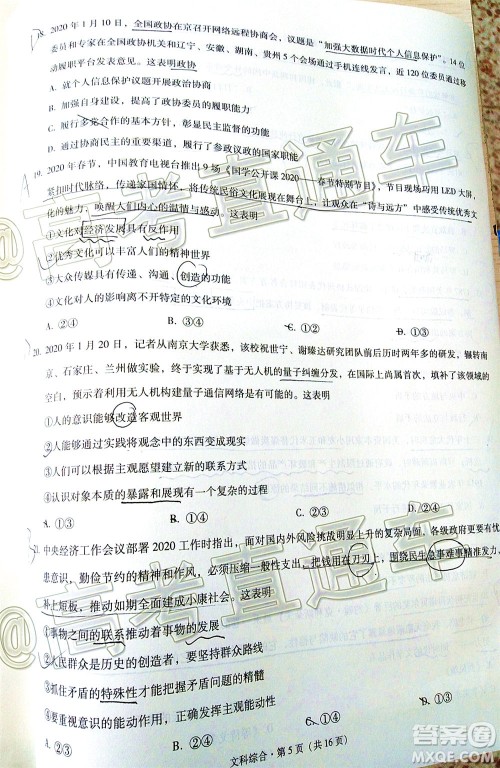 18. 2020 年 1 月 10 日，全国政协在京召开网络远程协商会，议题是“加强大数据时代个人信息保护”。14 位
委员和专家在全国政协机关和辽宁、安徽、湖南、贵州 5 个会场通过手机连线发言，近 120 位委员通过移
动履职平台发表意见。这表明政协
A. 就个人信息保护议题开展政治协商
B. 加强自身建设，提高了政协委员的履职能力
C. 履行了多党合作的基本方针，彰显民主监督的功能
D. 通过协商民主的重要渠道，履行了参政议政的国家职能
19. 2020 年春节，中国教育电视台推出 9 场《国学公开课 2020——春节特别节目》，节目现场巧用 LED 大屏，
紧扣时代脉络，传递家国情怀，将传统民俗文化展现在舞台上，让观众在“诗与远方”中感受传统优秀文
化的魅力，唤醒人们内心的温情与感动。这表明
①文化对经济发展具有反作用
②优秀文化可以丰富人们的精神世界
③大众传媒具有传递、沟通、创造的功能
④文化对人的影响离不开特定的文化环境
A. ②④
B. ①③
C. ①②
D. ③④
20. 2020 年 1 月 20 日，记者从南京大学获悉，该校祝世宁、谢臻达研究团队前后历时两年多的研发，辗转南
京、石家庄、兰州做实验，终于实现了基于无人机的量子纠缠分发，在国际上尚属首次，填补了该领域的
空白，预示着利用无人机构建移动量子通信网络有望实现。这表明
①人的意识能够改造客观世界
②人能够通过实践将观念中的东西变成现实
③人们可以根据主观愿望建立新的联系方式
④认识对象本质的暴露和展现有一个复杂的过程
A. ①③
B. ①②
C. ③④
D. ②④
21. 中央经济工作会议部署 2020 工作时指出，面对国内外风险挑战明显上升的复杂局面，各级政府要有忧
患意识，勤俭节约的精神和作风，必须把钱用在刀刃上，围绕民生急事难事精准发力，
补上短板，推动如期全面建成小康社会。这表明
①事物之间的联系推动着事物的发展
②人民群众是历史的创造者，要坚持群众路线
③抓住矛盾的特殊性才能把握矛盾问题的精髓
④要重视意识的能动作用，推动社会发展
A. ①③
B. ①②
C. ②④
D. ③④
文科综合·第 5 页（共 16 页）
@高考直通车
@高考直通车
答案圈